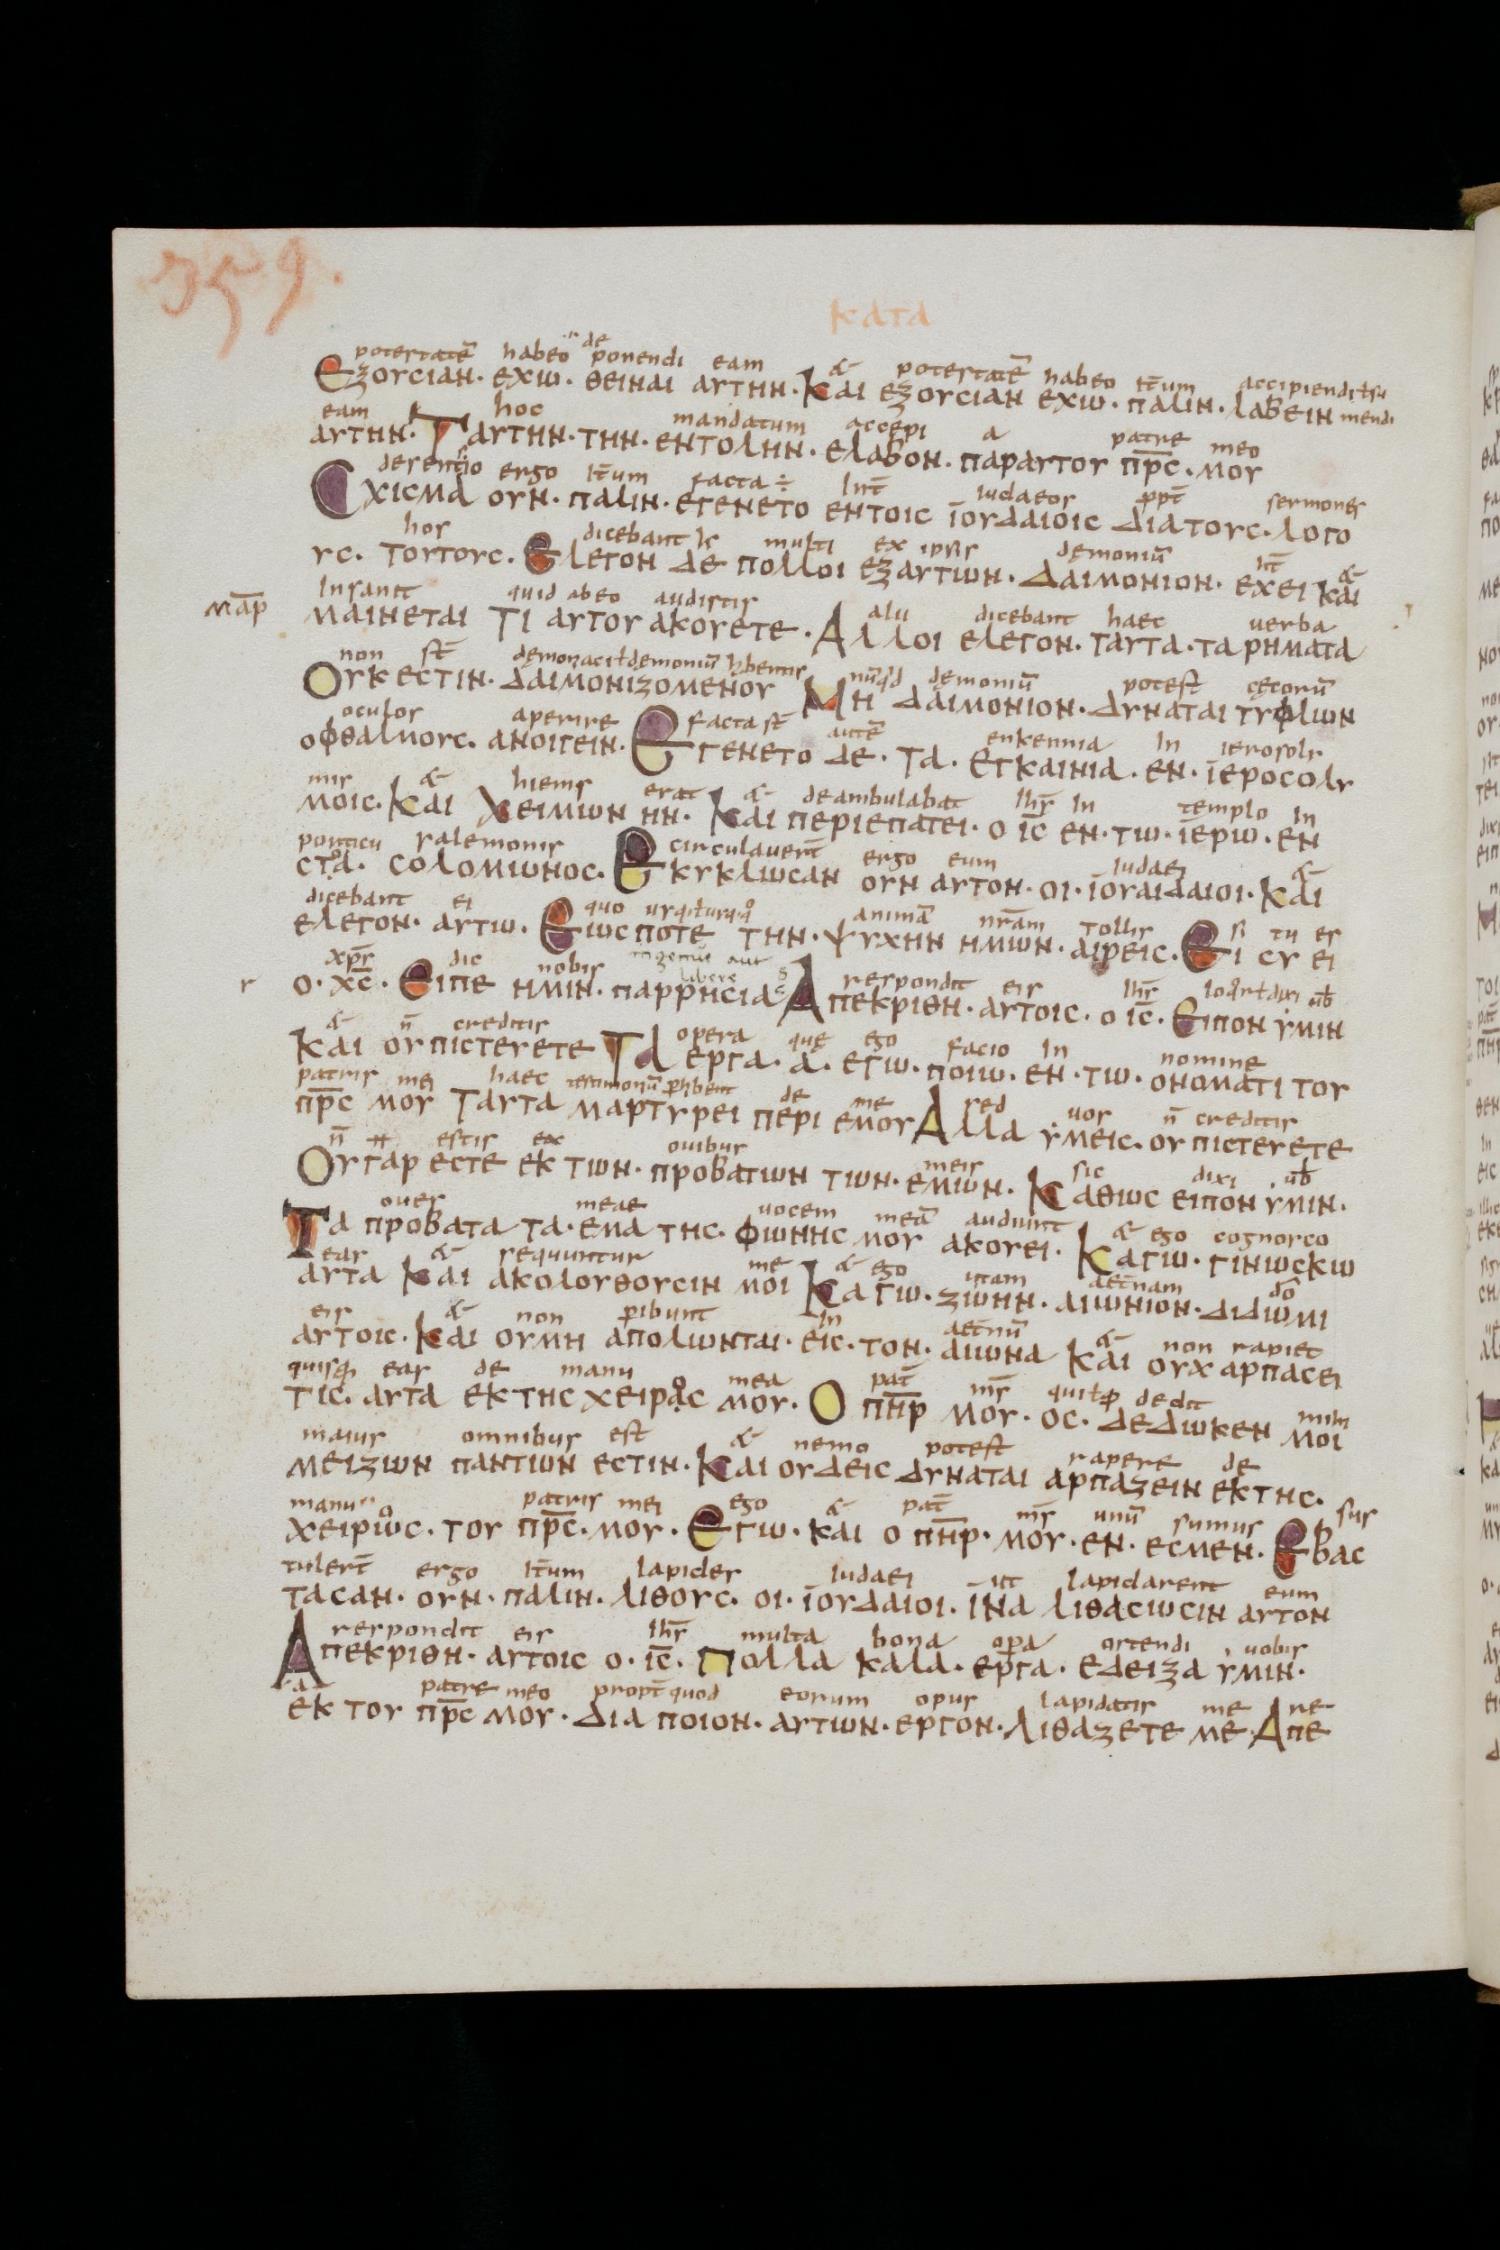 359.
κατα
potestatē habeo de ponendi eam & potestatē habeo itɇum accipiendi ł su
Εξουσιαν· εχω· θειναι αυτην· Και εξουσιαν εχω· παλιν· λαβειν mendi
eam hoc mandatum accepi a patre meo
αυτην· Ταυτην· την· εντολην· ελαβον· παραυτου πρ̅σ̅· μου
desentio ergo it̅um facta ÷ int̅ iudaeos ppt̅ sermones
Σχισμα ουν· παλιν· εγενετο εντοις ϊουδαιοις διατους· λογο
hos dicebant multi ex ipsis demoniū ht̅ &
υς· τουτους· Ελεγον δε πολλοι εξαυτων· Δαιμονιον· εχει και
insanit quid ab eo auditis
μα̅ρ μαινεται Τι αυτου ακουετε· alii dicebant haec uerba
Αλλοι ελεγον· ταυτα· τα ρηματα
non st̅ demoniaci ł demoniū hbentis nūqd demoniū potest cecorū
Ουκ εστιν· δαιμονιζομενου Μη δαιμονιον· δυναται τυφλων
oculos aperire facta st̅ autē enkennia in ierosoli
οφθαλμους· ανοιγειν· Εγενετο δε· τα· εγκαινια· εν· ϊεροσολυ
mis & hiems erat & deambulabat ihs̅ in templo in
μοις· Και Χειμων ην· Και περιεπατει· ο ις̅ εν· τω· ϊερω· εν
porticu salemonis circulauer̅t ergo eum iudaei &
στοα· σολομωνος· Εκυκλωσαν ουν αυτον· οι· ϊουαιδαιοι· και
dicebant ei quo usq· animā nrām tollis si tu es
ελεγον· αυτω· Εως ποτε την· ψυχην ημων· αιρεις· Ει συ ει
xps̅ dic nobis libere respondit eis ihs̅ ub̅
ο· χς̅· Ειπε ημιν· παρρησια Απεκριθη· αυτοις· ο ις̅· Ειπον ὑμιν
& n̅ creditis opera quę ego facio in nomine
και ου πιστευετε Τα εργα· α· εγω· ποιω· εν· τω· ονοματι του
patris mei haec testimoniū phibent de me sed uos n̅ creditis
πρ̅σ̅ μου Ταυτα μαρτυρει περι εμου Αλλα ὑμεις· ου πιστευετε
n̅ estis ex ouibus meis sic dixi ub̅
Ου γαρ εστε εκ των· προβατων των· εμων· Καθως ειπον ὑμιν·
oues meae uocem meā audiunt & ego cognosco
Τα προβατα τα· εμα της· φωνης μου ακουει· Καγω· γινωσκω
eas & sequuntur me & ego uitam aetnam do
αυτα Και ακολουθουσιν μοι Καγω· ζωην· αιωνιον· διδωμι
eis & non pibunt in aetnū & non rapiet
αυτοις· Και ουμη απολωνται· εις· τον· αιωνα Και ουχ αρπασει
quisq eas de manu mea pat̅ ms̅ dedit mihi
τις· αυτα εκ της χειρος μου· Ο πηρ̅ μου· ος· δεδωκεν μοι
maius omnibus est & nemo potest rapere de
μειζων παντων εστιν· Και ουδεις δυναται αρπαζειν εκ της·
manu patris mei ego & pat̅ ms̅ unū sumus sus
χειρος· του πρ̅σ̅· μου· Εγω· και ο πηρ̅· μου· εν· εσμεν· Εβασ
tulert̅ ergo it̅um lapides iudaei ut lapidarent eum
τασαν· ουν· παλιν· λιθους· οι· ϊουδαιοι· ϊνα λιθασωσιν αυτον
respondit eis ihs̅ multa bona opa ostendi uobis
Απεκριθη· αυτοις ο· ις̅· Πολλα καλα· εργα· εδειξα ὑμιν·
a patre meo propt̅ quod eorum opus lapidatis me re
εκ του πρ̅σ̅ μου· Δια ποιον· αυτων· εργον· Λιθαζετε με· Απε